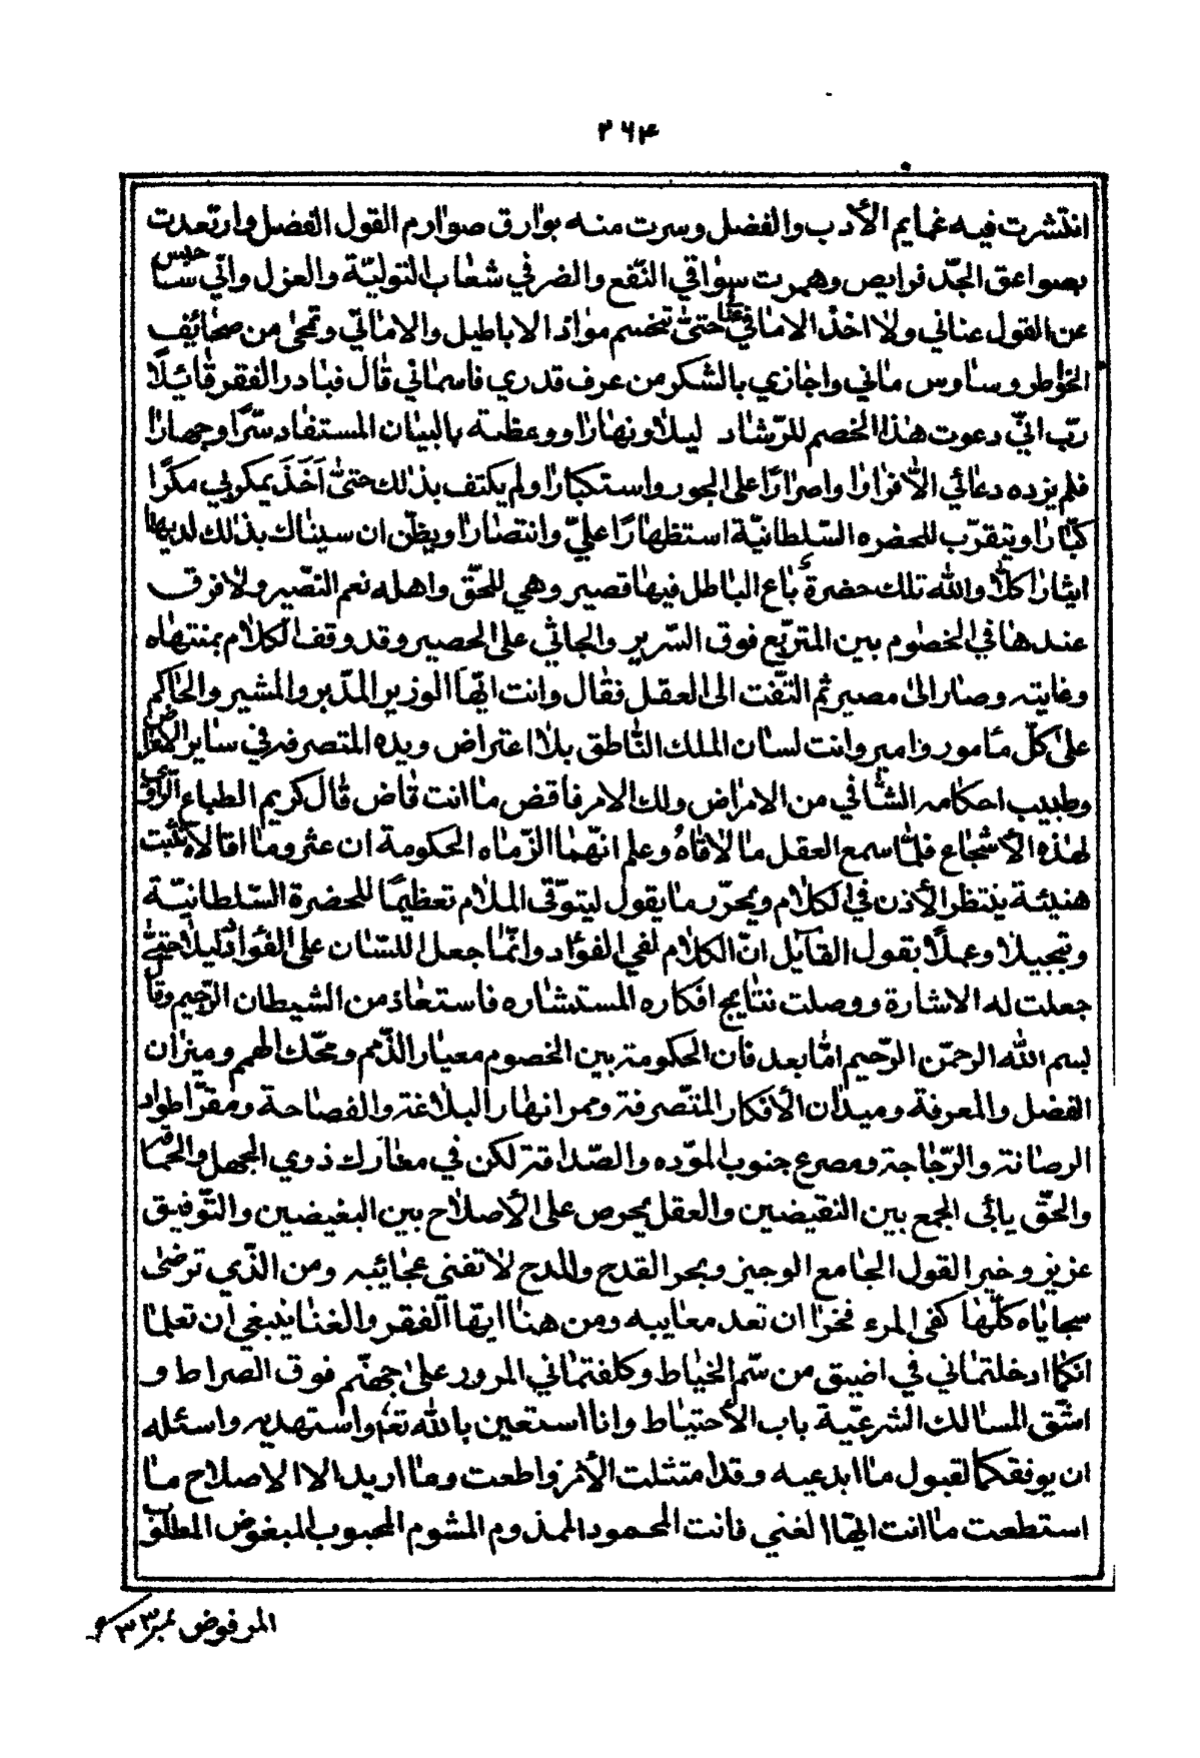 ٢٦٤
انتشرت فيه غمايم الأدب والفضل وسرت منه بوارق صوارم القول الفصل وارتعدت
بصواعق الجدّ فرايص وهمرت سواقي النّفع والضر في شعاب التوليّة والعزل وانّي حابس
عن القول عناني ولا اخذ الامانى حتىّ تنحسم موادّ الاباطيل والامانيّ وتمحى من صحائف
الخواطر وساوس ماني واجازي بالشكر من عرف قدري فاسماني قال فبادر الفقر قائيلاً
ربّ انيّ دعوت هذا الخصم للرّشاد ليلا ونهارا ووعظته بالبيان المستفاد سرًّا وجهارا
فلم يزده دعائي الاّ فرارا واصرارًا على الجور واستكبارا ولم يكتف بذلك حتىّ اَخَذَ يمكر بي مكرًا
كبّارا ويتقرّب للحضره السّلطانيّة استظهارًا عليّ وانتصارا ويظّن ان سيناك بذلك لديها
ايثارا كلاّ واللّه تلك حضرة باع الباطل فيها قصير وهي للحّق واهله نعم النّصير ولا فرق
عندها في الخصوم بين المتربّع فوق السّرير والجاثي على الحصير وقد وقف الكلام بمنتهاه
وغايته وصار الى مصير ثم التفّت الى العقل فقال وانت ايّها الوزير المدّبر والمشير والحاكم
على كلّ مامور وامير وانت لسان الملك النّاطق بلا اعتراض ويده المتصرفه في ساير الاغراض
وطبيب احكامه الشّافي من الامراض ولك الامر فاقض ما انت قاض قال كريم الطباع الرائق
لهذه الأشجاع فلمّا سمع العقل ما لاقاهُ وعلم انهّما الزّماه الحكومة ان عثر وما اقالاه لبث
هنيئة ينتظر الأذن في الكلام ويحرّر ما يقول ليتوّقى الملام تعظيمًا للحضرة السّلطانيّة
وتبجيلا وعملًا بقول القآيل انّ الكلام لفي الفؤاد وانمّا جعل اللسّان على الفؤاد دليلا حتىّ
جعلت له الاشارة ووصلت نتايج افكاره المستشاره فاستعاذ من الشيطان الرّجيم وقال
بسم اللّه الرحمّن الرّحيم امّا بعد فان الحكومة بين الخصوم معيار الذّمم ومحّك الهمم وميزان
الفضل والمعرفة وميدان الأفكار المتّصرفة وممر انهار البلاغة والفصاحة ومقرّ اطواد
الرصانة والرّجاجة ومصرع جنوب الموّده والصّداقة لكن في معارك ذوي الجهل والحماقه
والحّق يابى الجمع بين النقيضين والعقل يحرص على الأصلاح بين البغيضين والتّوفيق
عزيز وخير القول الجامع الوجيز وبحر القدح والمدح لا تفنى عجائبه ومن الذّي ترضى
سجاياه كلّها كفى المرء فخرا ان تعد معايبه ومن هنا ايّها الفقر والغنا ينبغي ان تعلما
انكما ادخلتماني في اضيق من سّم الخياط وكلفتماني المرور على جهنّم فوق الصراط و
اشّق المسالك الشرعيّة باب الأحتياط وانا استعين باللّه تع واستهديه واسئله
ان يوفقكما لقبول ما ابديه وقد امتثلت الأمر واطعت وما اريد الا الاصلاح ما
استطعت ما انت ايّها الغني فانت المحمود المذموم المشوم المحبوب المبغوض المطلوب
المرفوض نمبر ٣٣